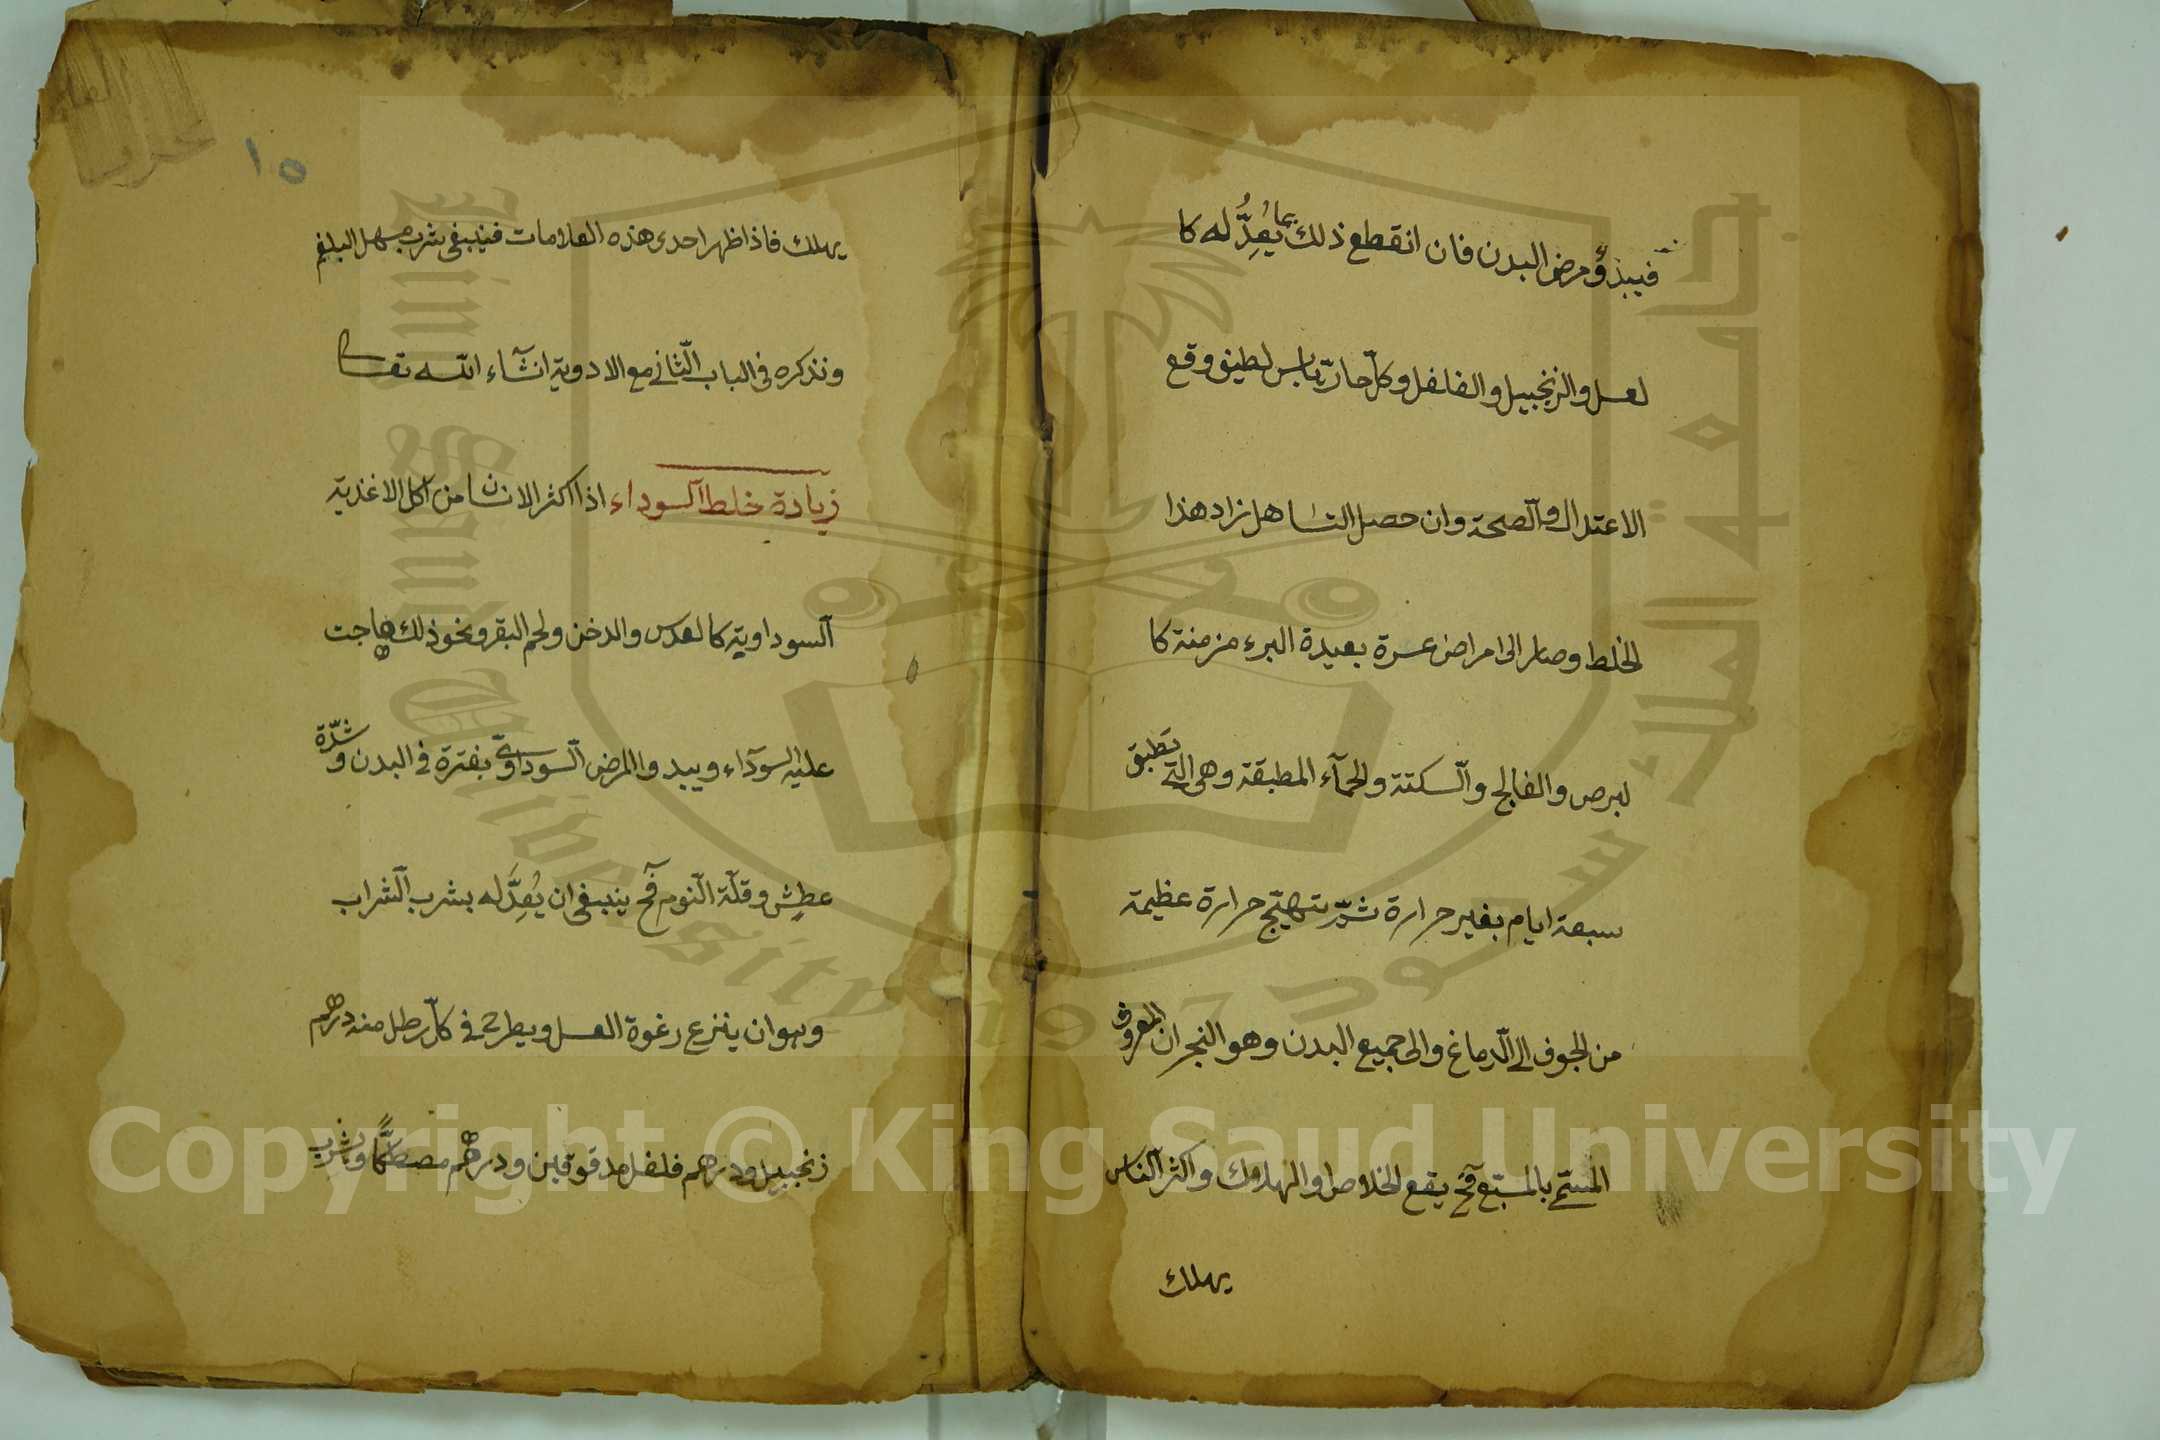 فيبدؤ مرض البدن فان انقطع ذلك بما يُعدِّله كا
لعسل والزنجبيل والفلفل وكلّ حارّ يابس لطيف وقع
الاعتدال والصحة وان حصل التساهل زاد هذا
الخلط وصار الى امراض عسرة بعيدة البرء مزمنة كا
لبرص والفالج والسكتة والحمآء المطبقة وهى التى تطبق
سبعة ايام بغير حرارة ثمّ تهيّج حرارة عظيمة
من الجوف الى الدماغ والى جميع البدن وهو البحران المعروف
المسمّى بالمسبّع فح يقع الخلاص او الهلاك واكثر الناس
يهلك
١٥
يهلك فاذا ظهر احدى هذه العلامات فينبغى شرب مسهل البلغم
ونذكره فى الباب الثانى مع الادوية انشآء الله تعالى
زيادة خلط السوداء اذا اكثر الانسان من اكل الاغذية
السوداوية كالعدس والدخن ولحم البقر ونحو ذلك هاجت
عليه السودآء ويبدو المرض السوداوىّ بفترة فى البدن وشدّة
عطش وقلّة النوم فح ينبغى ان يُعدَّله بشرب الشراب
وهو ان ينزع رغوة العسل ويطرح فى كلّ رطل منه درهم
زنجبيل ودرهم فلفل مدقوقين ودرهم مصطكًا ويشرب
Copyright © King Saud University
جامعة الملك سعود
King Saud University 1957